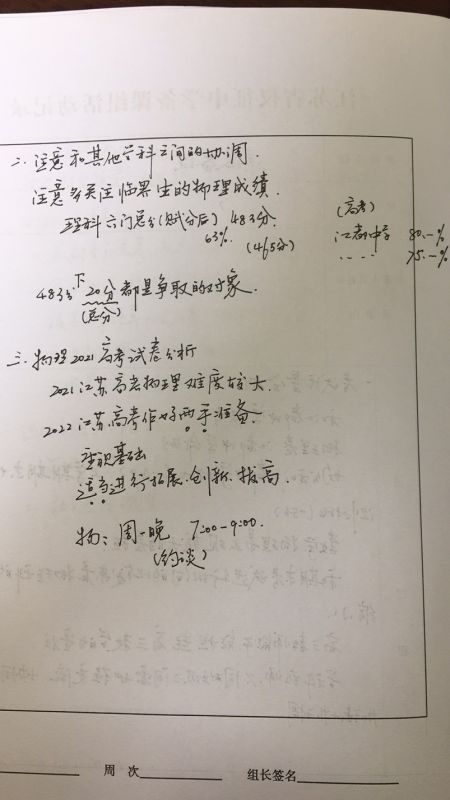 二. 注意和其他学科之间的协调.
注意多关注临界生的物理成绩.
理科六门总分(赋分后) 483分.
63%. (465分)
(高考)
江都中学 80.-%
..... 75.-%
483分下20分都是争取的对象.
(总分)
三. 物理2021高考试卷分析
2021江苏高考物理难度较大.
2022江苏高考作好两手准备.
重视基础
适当进行拓展.创新.拔高.
物: 周一晚 7:00-9:00.
(约谈)
周 次
组长签名